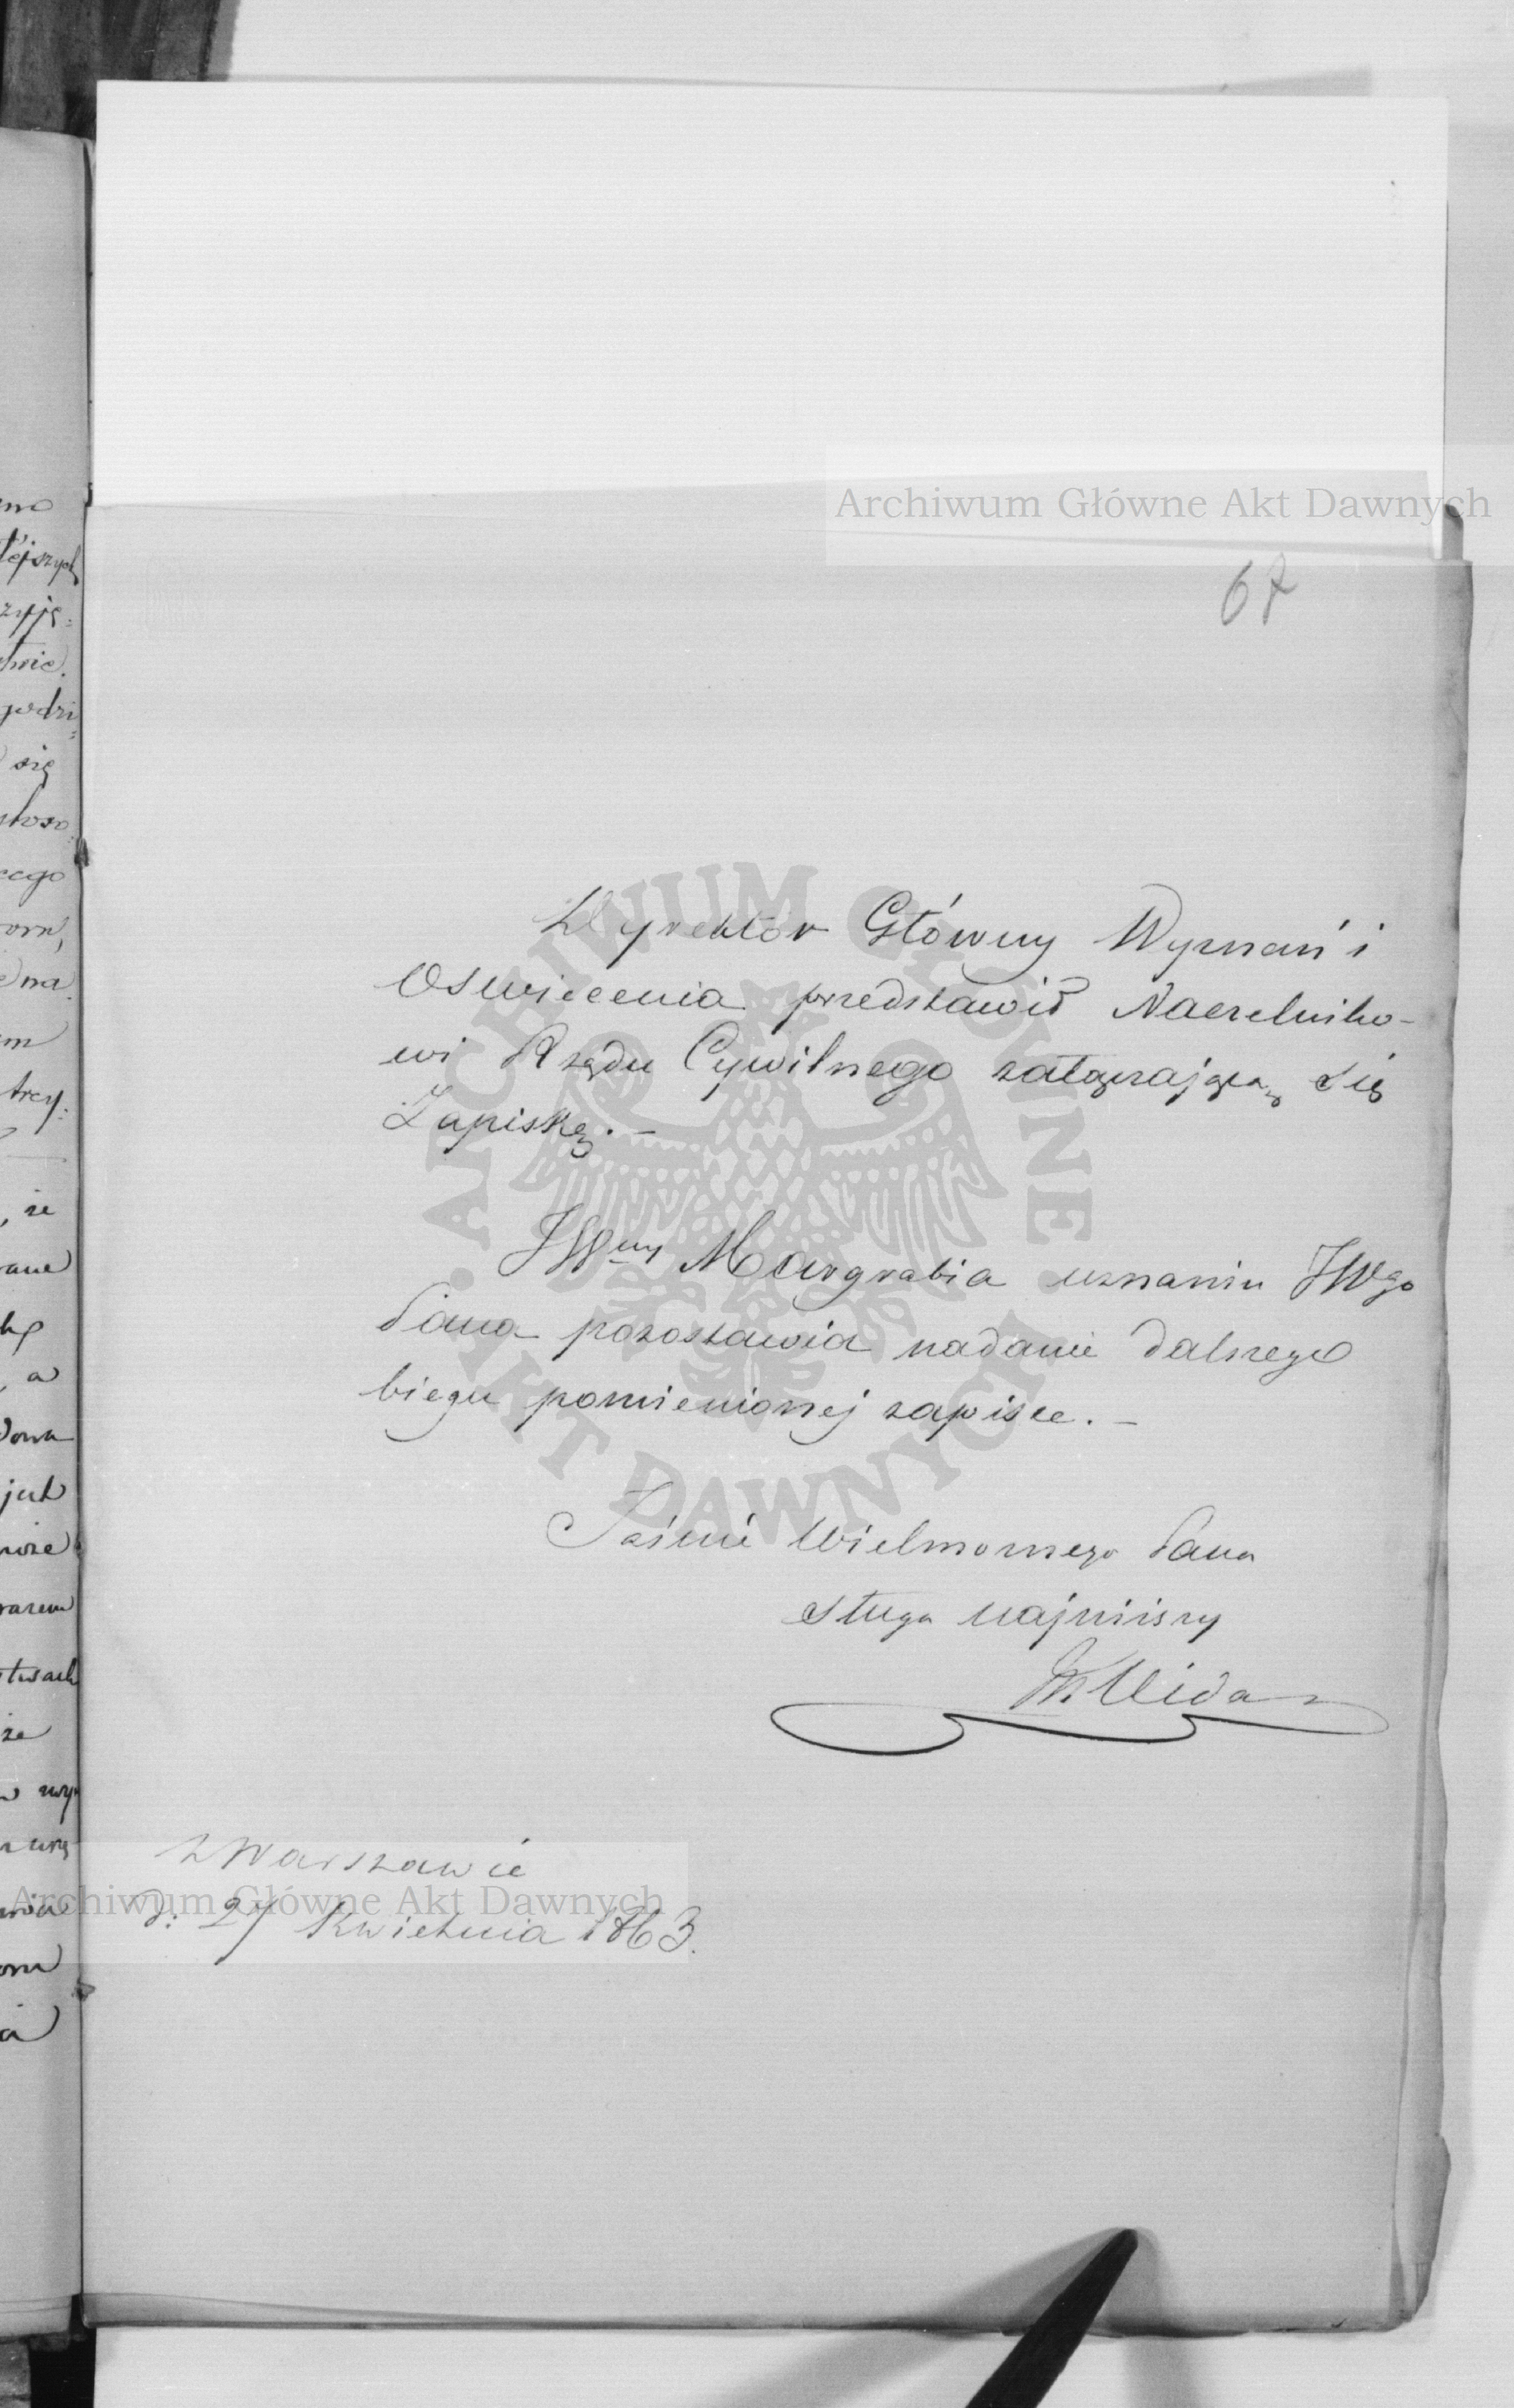 Archiwum Główne Akt Dawnych
67
Dyrektor Główny Wyznań i
Oświecenia przedstawił Naczelniko-
wi Rządu Cywilnego załączającą się
Zapiskę. –
JWny Margrabia uznaniu JWgo
Pana pozostawia nadanie dalszego
biegu pomienionej zapisce. –
Jaśnie Wielmożnego Pana
sługa najniższy
Vidal
z Warszawie
d: 27 Kwietnia 1863.
Archiwum Główne Akt Dawnych
ARCHIWUM GŁÓWNE
AKT DAWNYCH
tejszych
się
cego
, że
, a
już
że